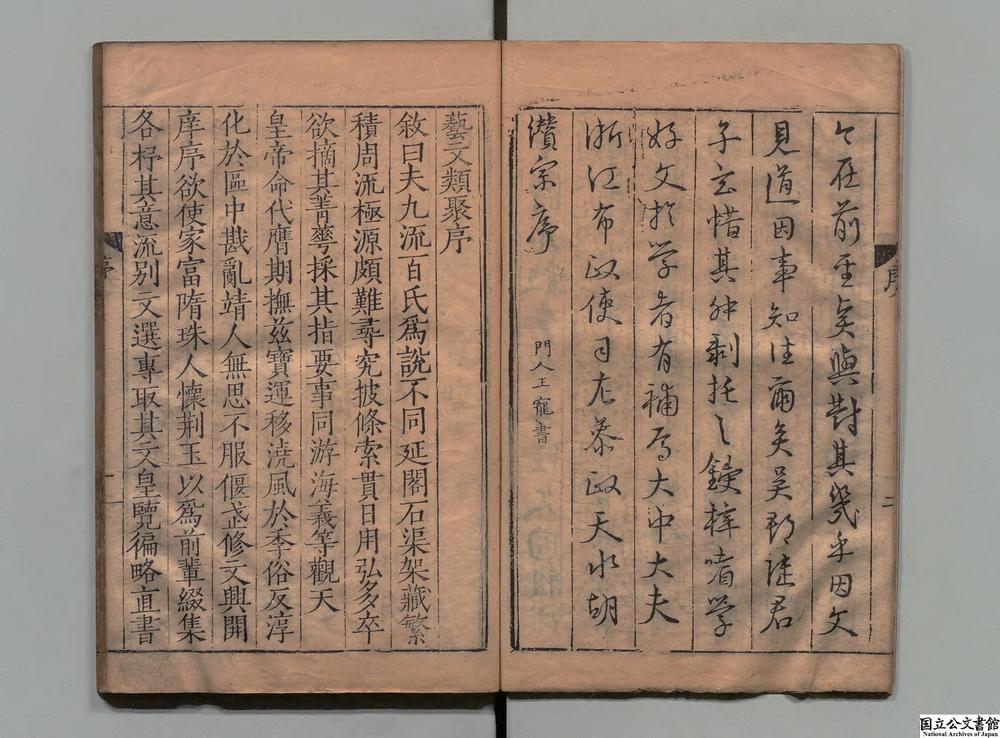 在前至矣與對其幾乎因文
見道因事知往爾矣吳郡陸君
子玄惜其舛剝托之鋟梓嗜學
好文於學者有補焉大中大夫
浙江布政使司左參政天水胡
纘宗序
門人王寵書
序
二
藝文類聚序
敘曰夫九流百氏爲說不同延閣石渠架藏繁
積周流極源頗難尋究披條索貫日用弘多卒
欲摘其菁華採其指要事同游海義等觀天
皇帝命代膺期撫茲寶運移澆風於季俗反淳
化於區中戡亂靖人無思不服偃武修文興開
庠序欲使家富隋珠人懷荆玉以爲前輩綴集
各杼其意流別文選專取其文皇覽徧略直書
序
国立公文書館
National Archives of Japan